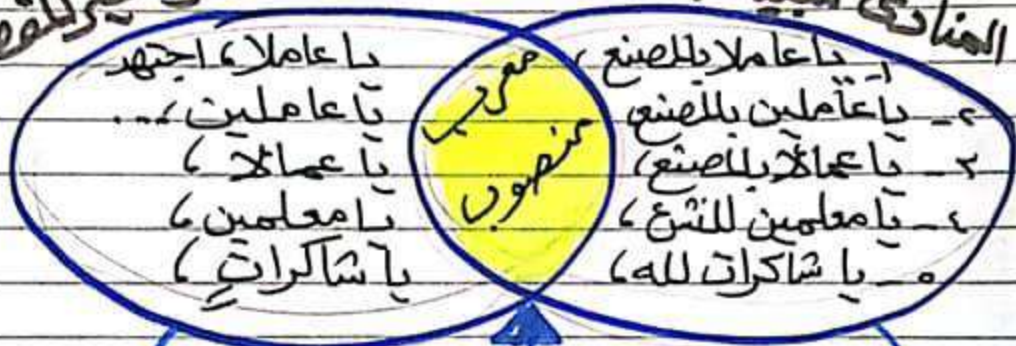 المنادى
يا عاملا بالمصنع،
٢- يا عاملين بالمصنع
٣- يا عمالًا بالمصنع،
٤- يا معلمين للنشئ،
٥- يا شاكرات لله،
معرب
منصوب
يا عاملا، اجتهد
يا عاملين،...
يا عمالًا،
يا معلمين،
يا شاكراتٍ،